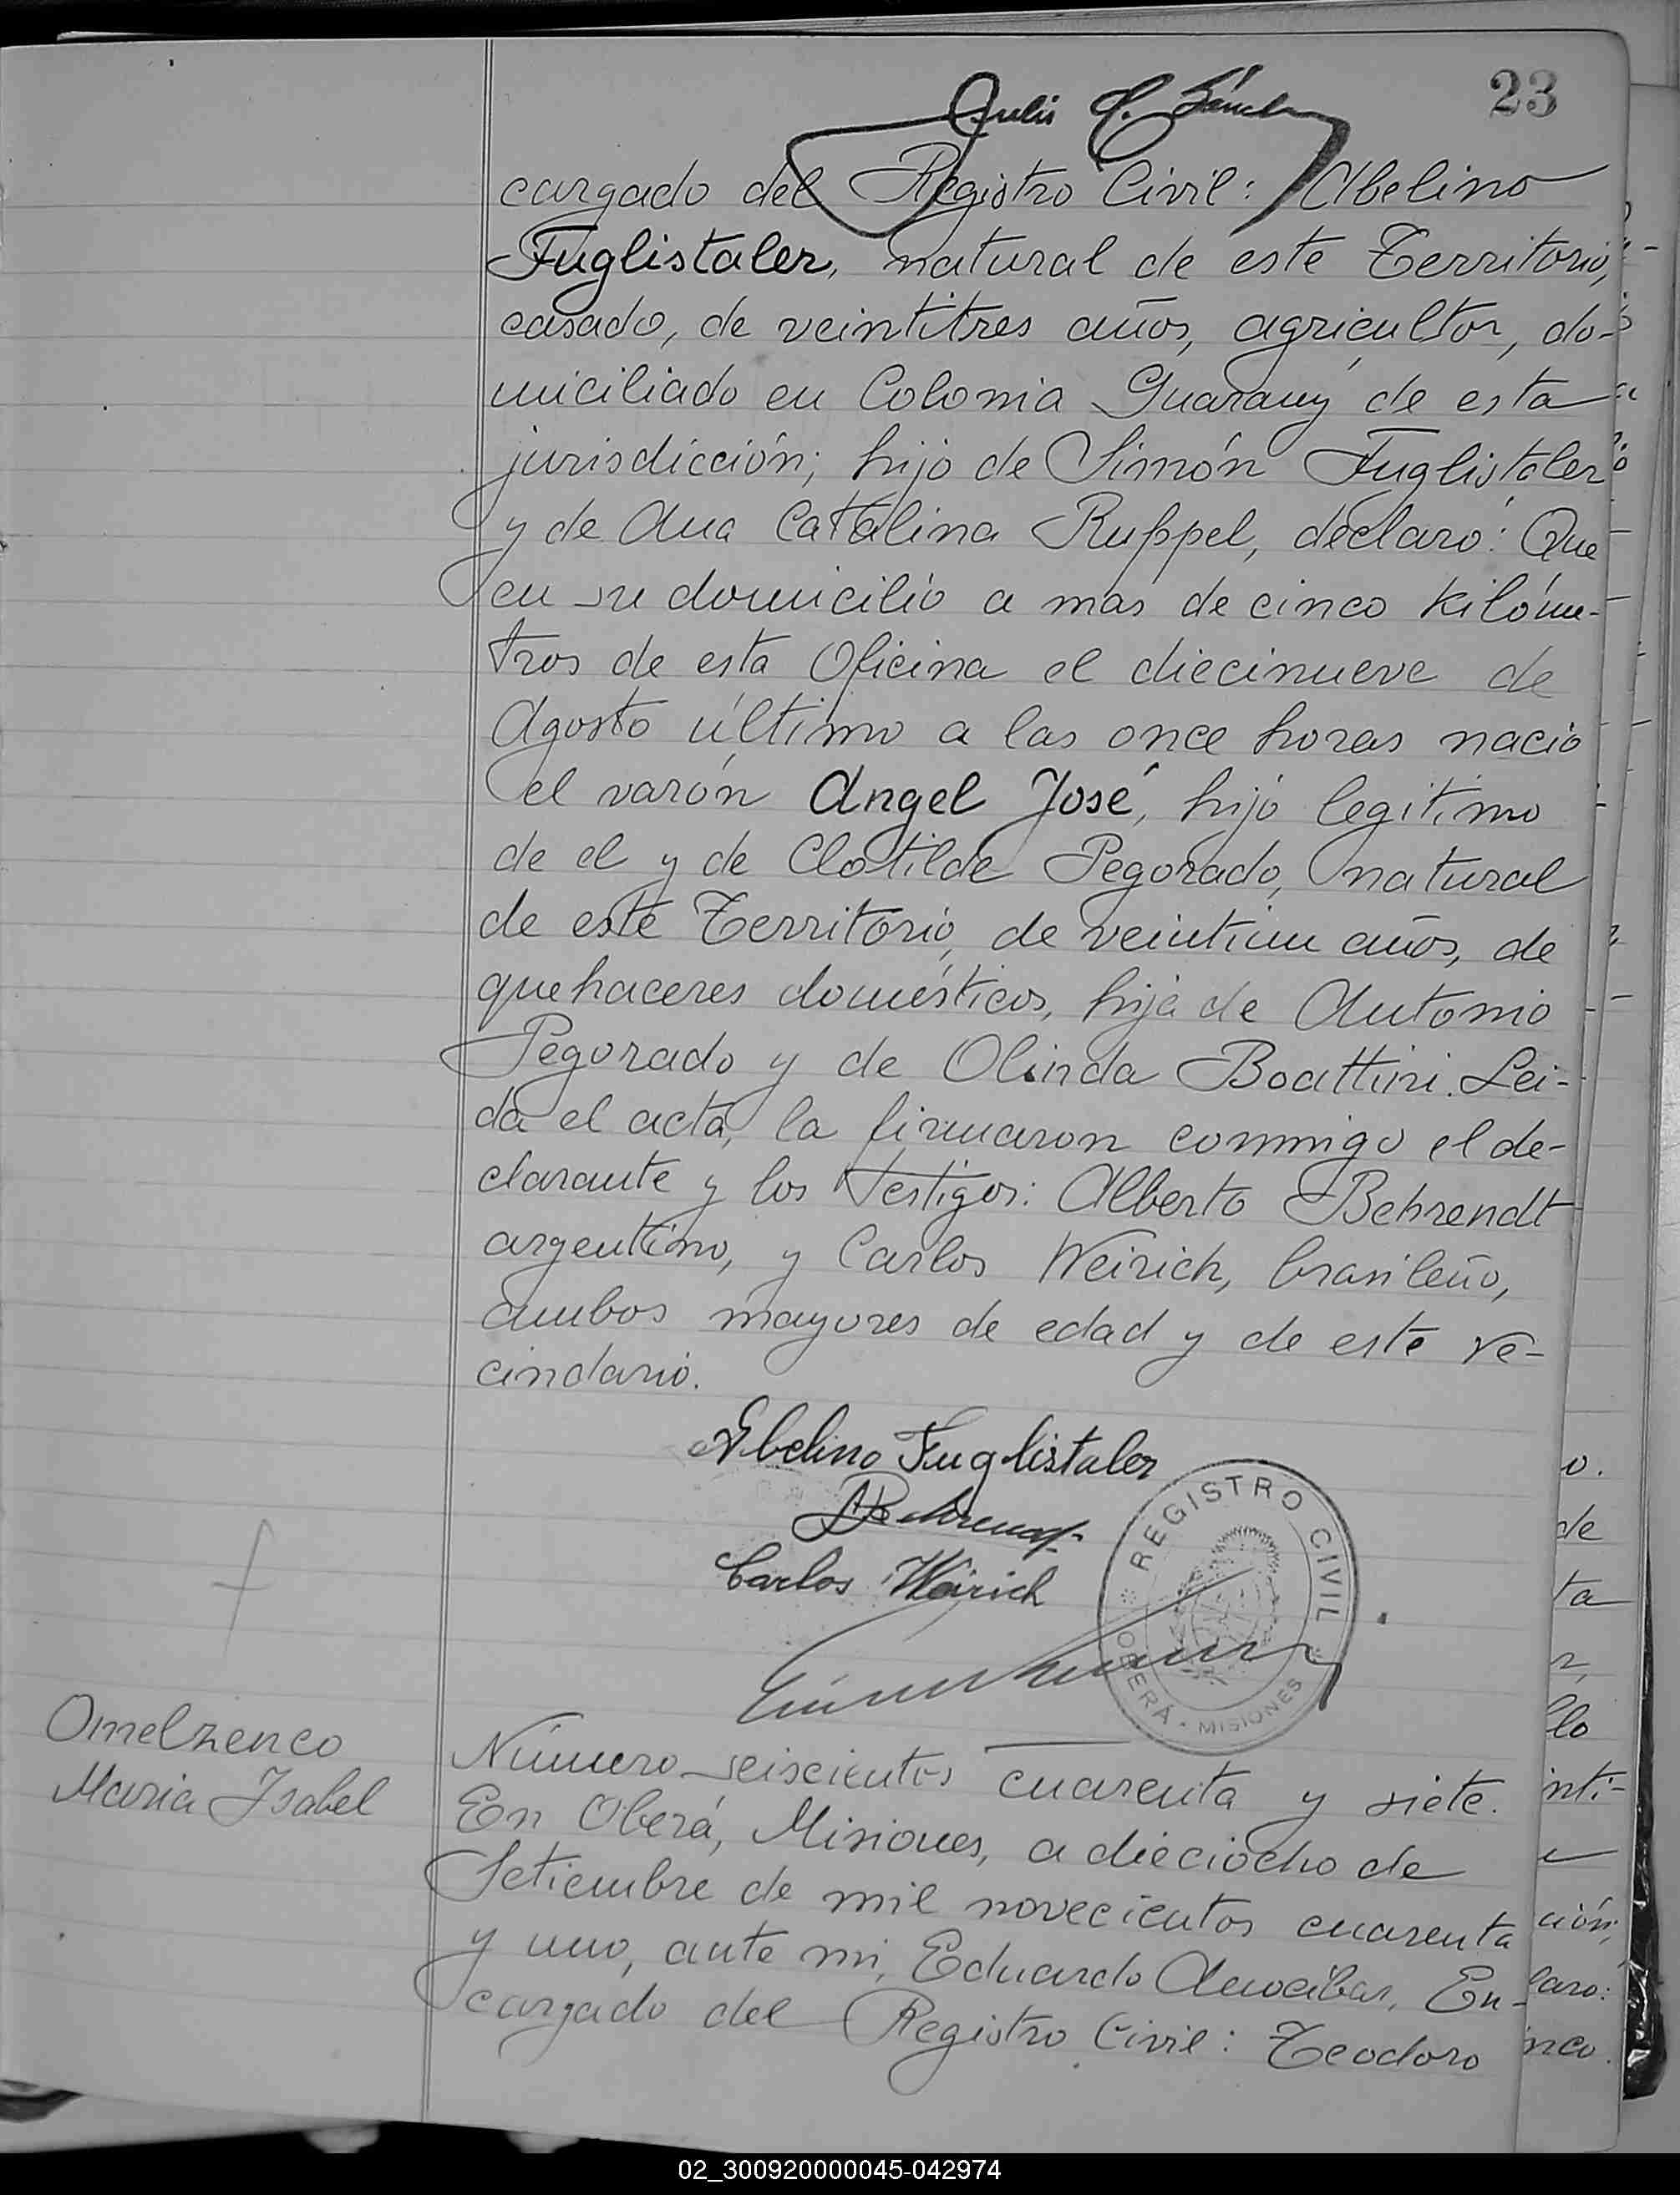 23
cargado del Registro Civil: Abelino
Fuglistaler, natural de este Territorio,
casado, de veintitres años, agricultor, do-
miciliado en Colonia Guarany de esta
jurisdicción; hijo de Simón Fuglistaler
y de Ana Catalina Ruppel, declaró: Que
en su domicilio a mas de cinco kilóme-
tros de esta Oficina el diecinueve de
Agosto último a las once horas nació
el varón Angel José, hijo legítimo
de el y de Clotilde Pegorado, natural
de este Territorio, de veintiun años, de
quehaceres domésticos, hija de Antonio
Pegorado y de Olinda Boattini. Lei-
da el acta, la firmaron conmigo el de-
clarante y los testigos: Alberto Behrendt
argentino, y Carlos Weirich, brasileño,
ambos mayores de edad y de este ve-
cindario.
Abelino Fuglistaler
Carlos Weirich
REGISTRO CIVIL
OBERÁ - MISIONES
Omelzenco
Maria Isabel
Número seiscientos cuarenta y siete.
En Oberá, Misiones, a dieciocho de
Setiembre de mil novecientos cuarenta
y uno, ante mi, Eduardo Arrocibar, En-
cargado del Registro Civil: Teodoro
02_300920000045-042974